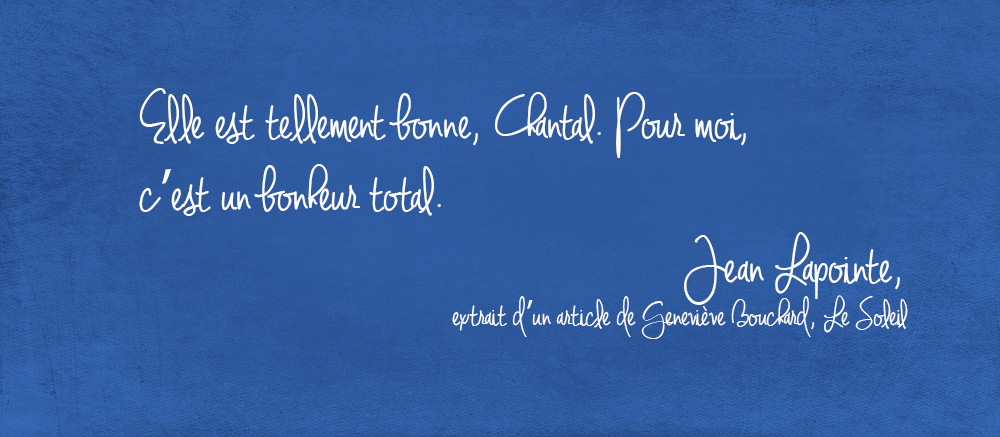 Elle est tellement bonne, Chantal. Pour moi,
c'est un bonheur total.
Jean Lapointe,
extrait d'un article de Geneviève Bouchard, Le Soleil